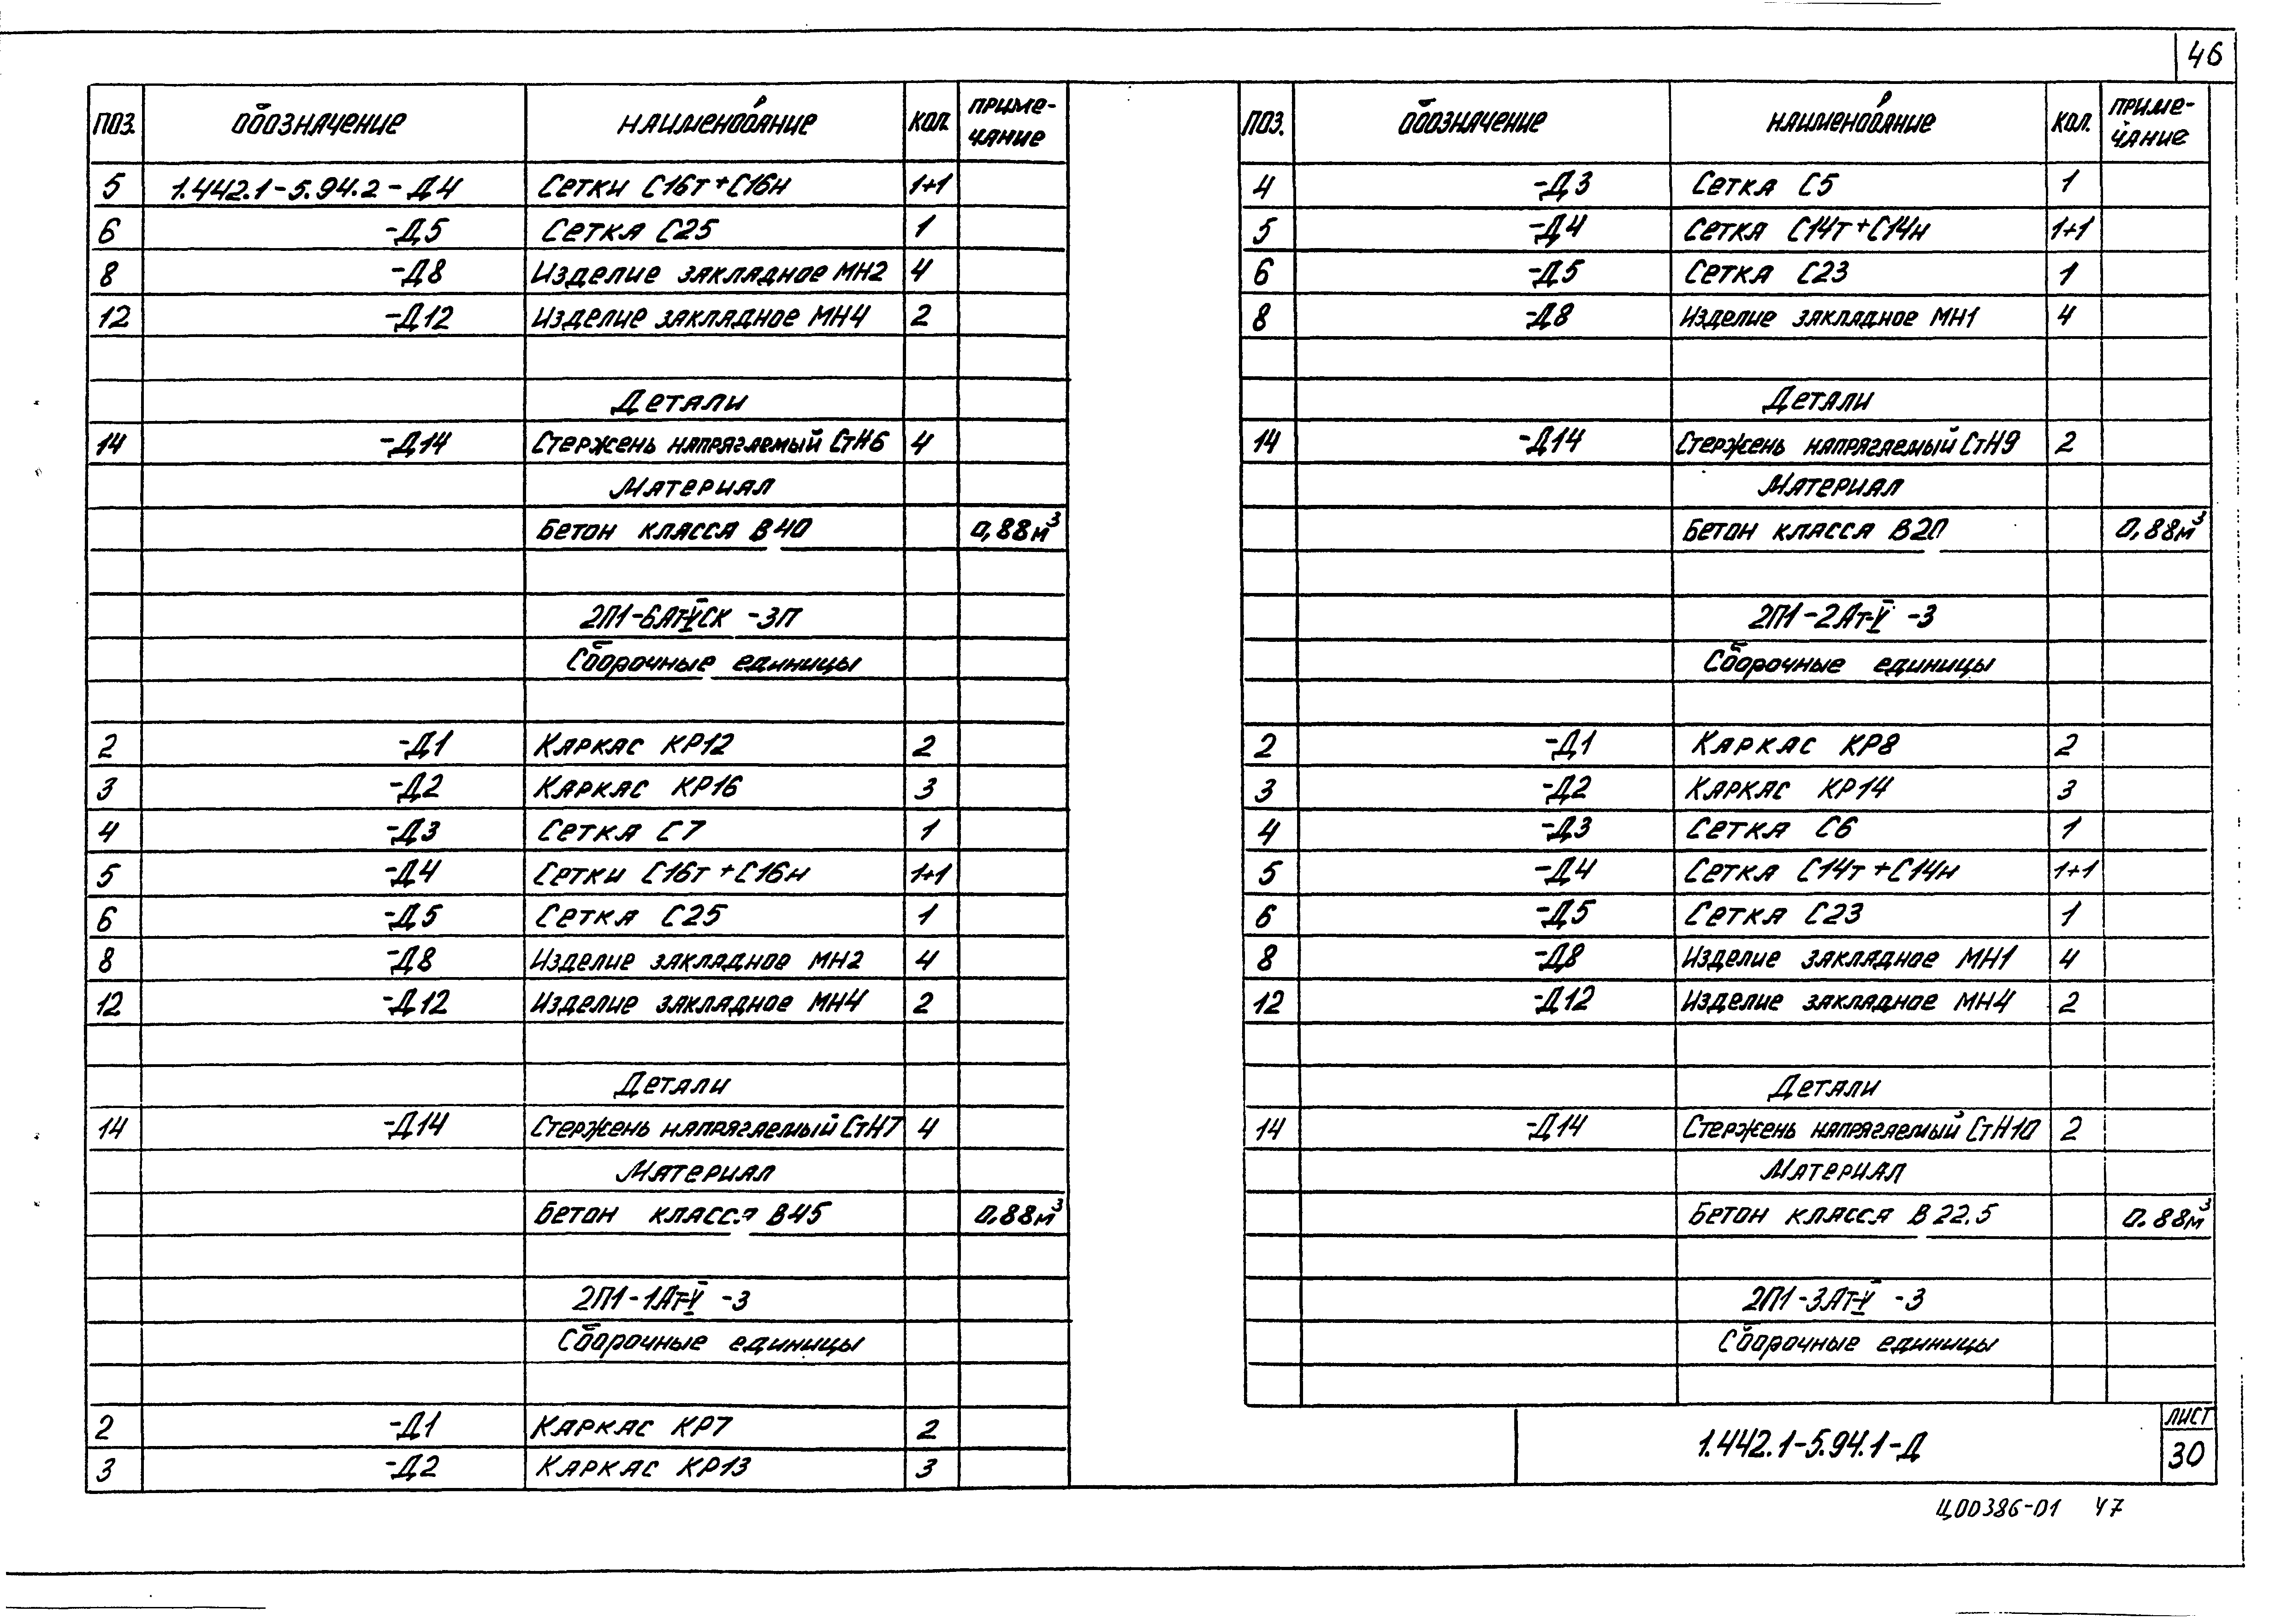 46
ПОЗ. ОБОЗНАЧЕНИЕ НАИМЕНОВАНИЕ КОЛ. ПРИМЕ-
ЧАНИЕ
5 1.442.1-5.94.2-Д4 Сетки С16т+С16н 1+1
6 -Д5 Сетка С25 1
8 -Д8 Изделие закладное МН2 4
12 -Д12 Изделие закладное МН4 2
Детали
14 -Д14 Стержень напрягаемый СтН6 4
Материал
Бетон класса В40 0,88м³
2П1-6Ат-VСК -3П
Сборочные единицы
2 -Д1 Каркас КР12 2
3 -Д2 Каркас КР16 3
4 -Д3 Сетка С7 1
5 -Д4 Сетки С16т+С16н 1+1
6 -Д5 Сетка С25 1
8 -Д8 Изделие закладное МН2 4
12 -Д12 Изделие закладное МН4 2
Детали
14 -Д14 Стержень напрягаемый СтН7 4
Материал
Бетон класса В45 0.88м³
2П1-1Ат-V -3
Сборочные единицы
2 -Д1 Каркас КР7 2
3 -Д2 Каркас КР13 3
ПОЗ. ОБОЗНАЧЕНИЕ НАИМЕНОВАНИЕ КОЛ. ПРИМЕ-
ЧАНИЕ
4 -Д3 Сетка С5 1
5 -Д4 Сетка С14т+С14н 1+1
6 -Д5 Сетка С23 1
8 -Д8 Изделие закладное МН1 4
Детали
14 -Д14 Стержень напрягаемый СтН9 2
Материал
Бетон класса В20 0,88м³
2П1-2Ат-V -3
Сборочные единицы
2 -Д1 Каркас КР8 2
3 -Д2 Каркас КР14 3
4 -Д3 Сетка С6 1
5 -Д4 Сетка С14т+С14н 1+1
6 -Д5 Сетка С23 1
8 -Д8 Изделие закладное МН1 4
12 -Д12 Изделие закладное МН4 2
Детали
14 -Д14 Стержень напрягаемый СтН10 2
Материал
Бетон класса В22.5 0.88м³
2П1-3Ат-V -3
Сборочные единицы
1.442.1-5.94.1-Д
ЛИСТ
30
Ц00386-01 47